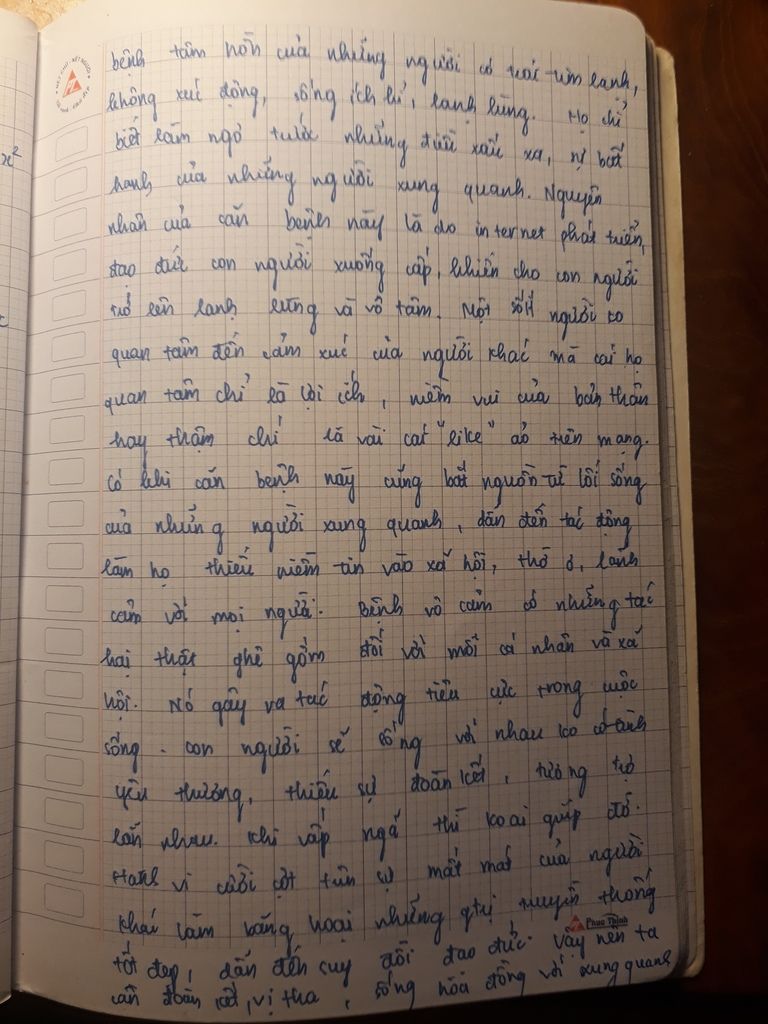 bệnh tâm hồn của những người có trái tim lạnh,
không xúc động, sống ích kỉ, lạnh lùng. Họ chỉ
biết làm ngơ trước những điều xấu xa, sự bất
hạnh của những người xung quanh. Nguyên
nhân của căn bệnh này là do internet phát triển,
đạo đức con người xuống cấp, khiến cho con người
trở lên lạnh lùng và vô tâm. Một số người ko
quan tâm đến cảm xúc của người khác mà cái họ
quan tâm chỉ là lợi ích, niềm vui của bản thân
hay thậm chí là vài cái "like" ảo trên mạng.
Có khi căn bệnh này cũng bắt nguồn từ lối sống
của những người xung quanh, dẫn đến tác động
làm họ thiếu niềm tin vào xã hội, thờ ơ, lãnh
cảm với mọi người. Bệnh vô cảm có những tác
hại thật ghê gớm đối với mỗi cá nhân và xã
hội. Nó gây ra tác động tiêu cực trong cuộc
sống. con người sẽ sống với nhau ko có tình
yêu thương, thiếu sự đoàn kết, tương trợ
lẫn nhau. Khi vấp ngã thì ko ai giúp đỡ.
Hành vi cười cợt trên sự mất mát của người
khác làm băng hoại những gtrị truyền thống
tốt đẹp, dẫn đến suy đồi đạo đức. Vậy nên ta
cần đoàn kết, vị tha, sống hòa đồng với xung quanh
Phúc Thịnh
x²